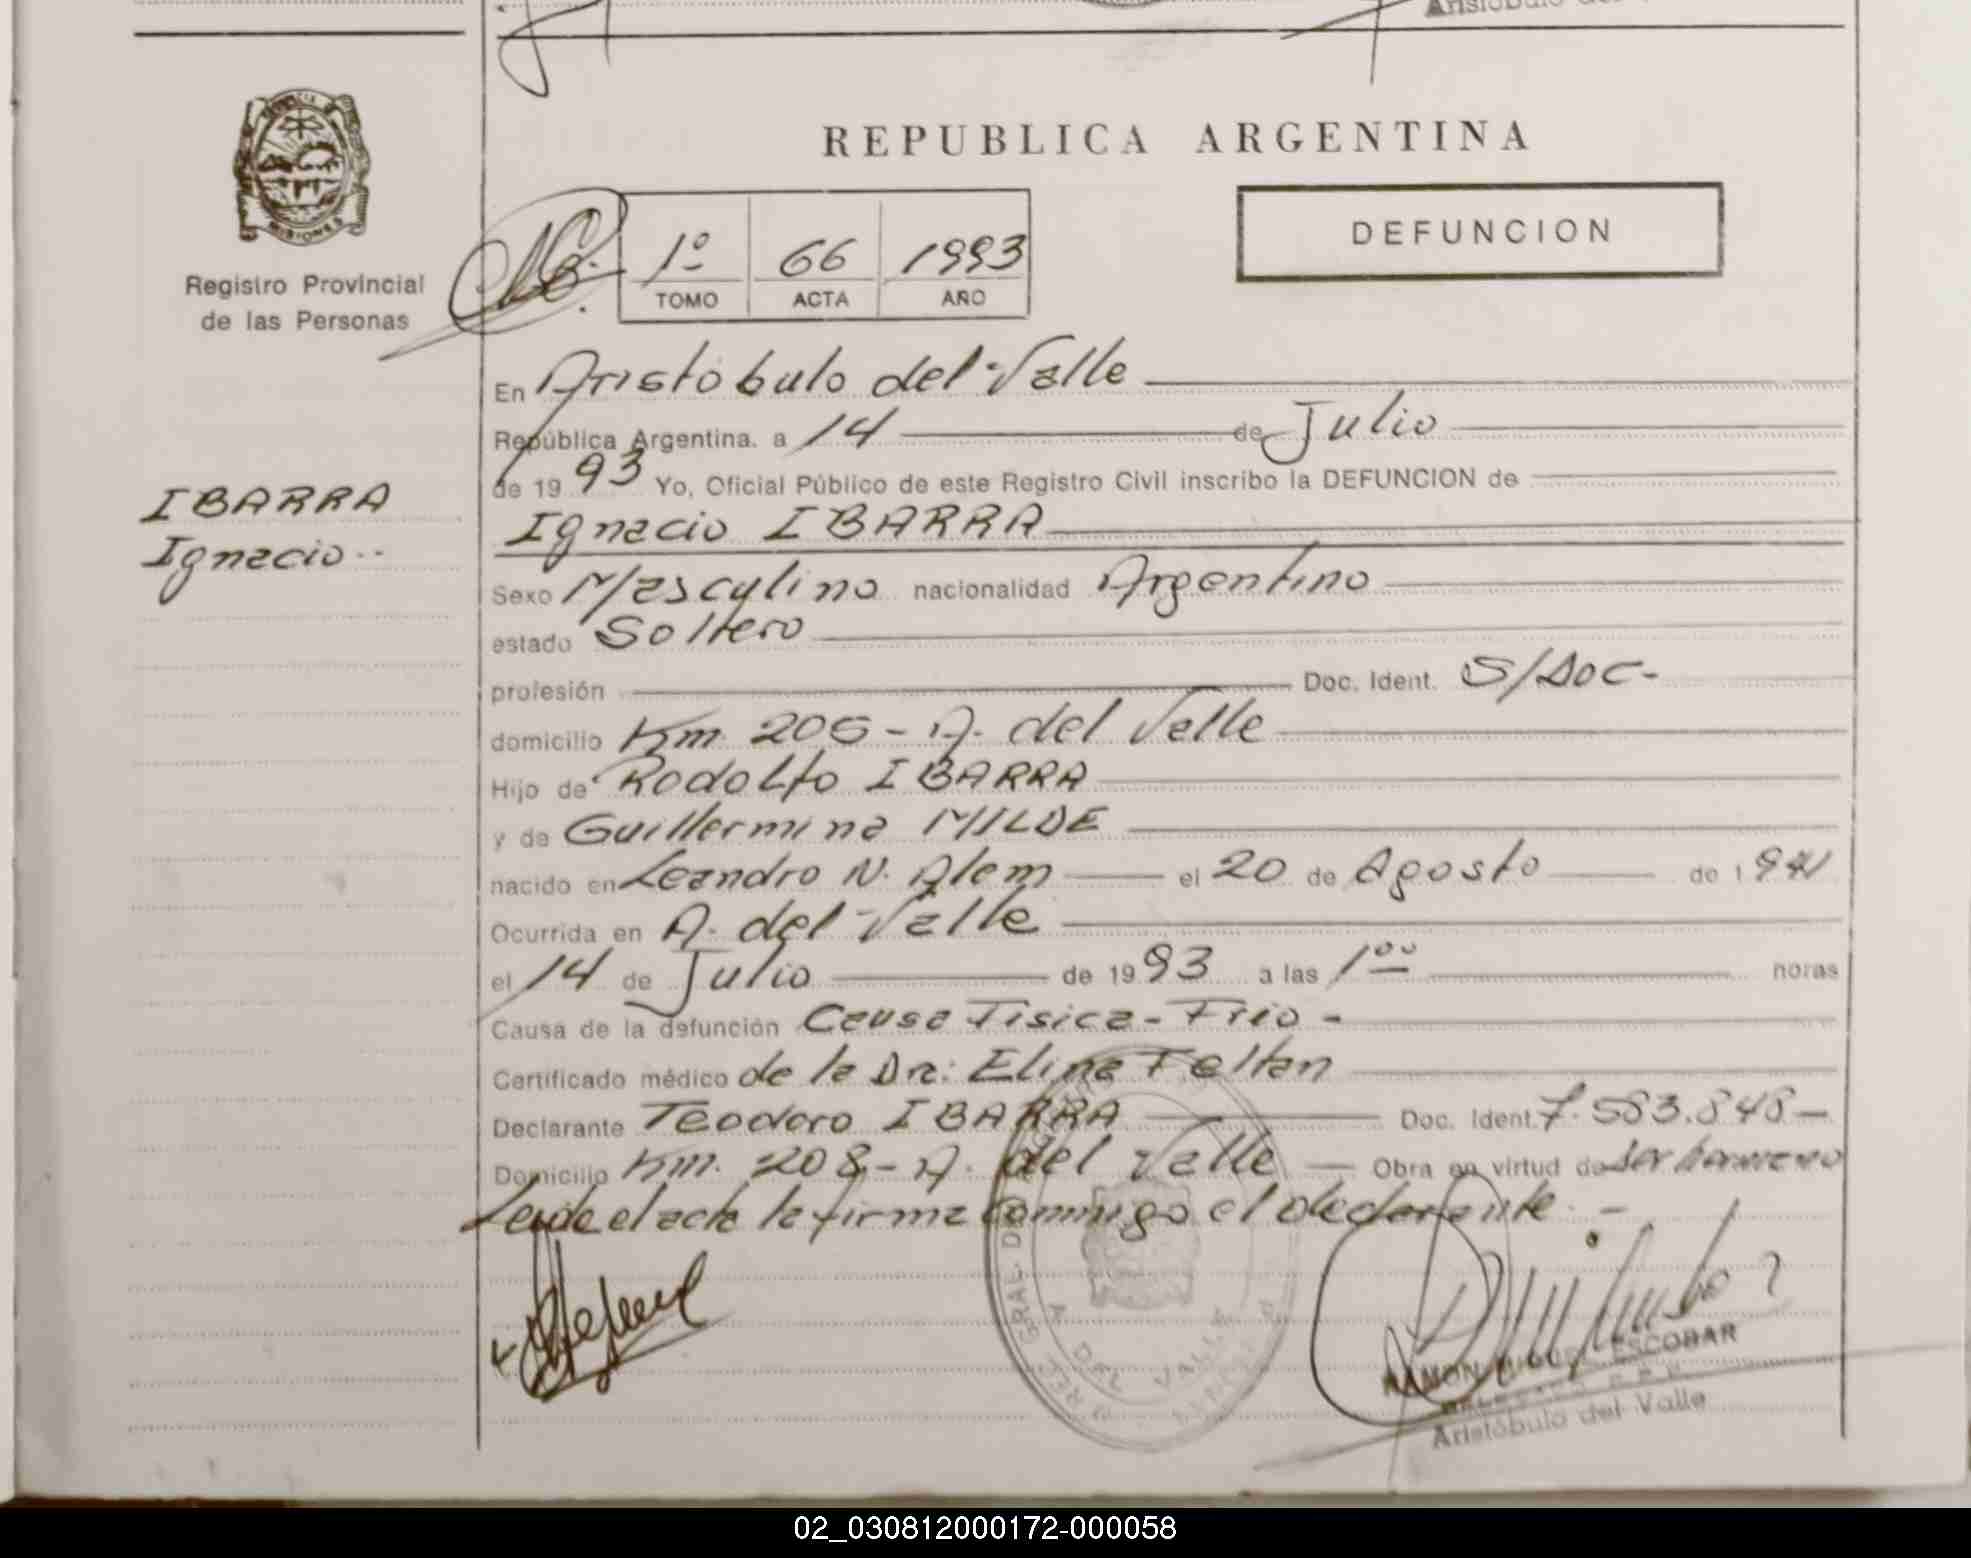 REPUBLICA ARGENTINA
MISIONES
Registro Provincial
de las Personas
1º 66 1993
TOMO ACTA AÑO
DEFUNCION
En Aristóbulo del Valle
República Argentina. a 14 de Julio
de 1993 Yo, Oficial Público de este Registro Civil inscribo la DEFUNCION de
IBARRA
Ignacio
Ignacio IBARRA
Sexo Masculino nacionalidad Argentino
estado Soltero
profesión Doc. Ident. S/Doc-
domicilio Km. 206 - A. del Valle
Hijo de Rodolfo IBARRA
y de Guillermina MILDE
nacido en Leandro N. Alem el 20 de Agosto de 1941
Ocurrida en A. del Valle
el 14 de Julio de 1993 a las 1⁰⁰ horas
Causa de la defunción Causa Tisica - Frio -
Certificado médico de la Dra: Elina Feltan
Declarante Teodoro IBARRA Doc. Ident. 7.583.848-
Domicilio Km. 208 - A. del Valle Obra en virtud de ser hermano
Leida el acta la firma conmigo el declarante. -
A. DEL VALLE
RAMON MIGUEL ESCOBAR
Aristóbulo del Valle
02_030812000172-000058